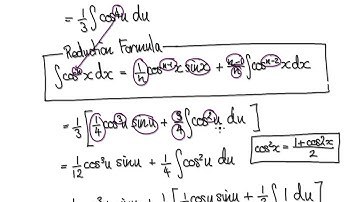 = 1/3 ∫ cos⁴u du
Reduction Formula
∫ cosⁿx dx = 1/n cosⁿ⁻¹x sinx + n-1/n ∫ cosⁿ⁻²x dx
= 1/3 [ 1/4 cos³u sinu + 3/4 ∫ cos²u du ]
= 1/12 cos³u sinu + 1/4 ∫ cos²u du
cos²x = 1+cos2x/2
cos³u sinu + 1/4 [ 1/2 cosu sinu + 1/2 ∫ 1 du ]